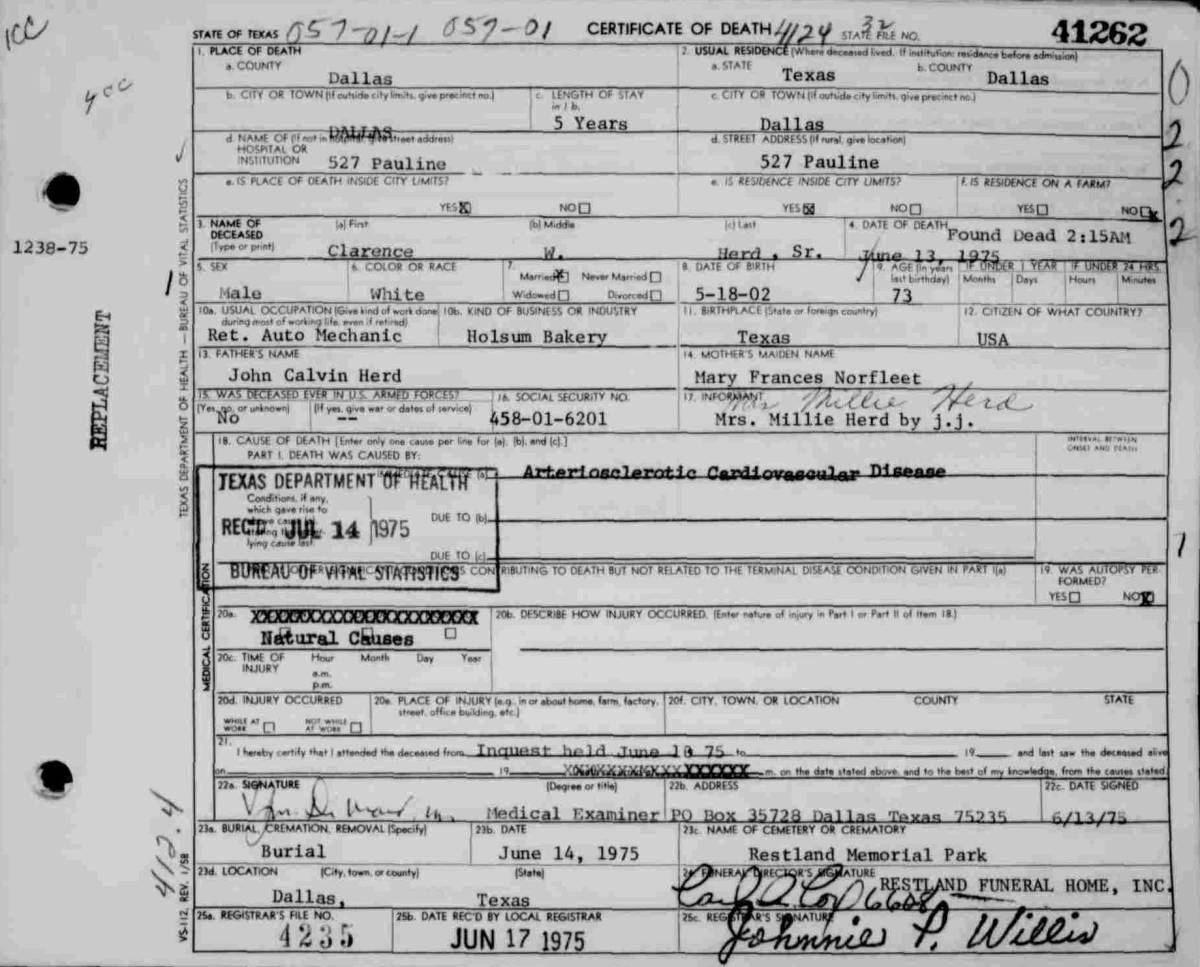 ICC
STATE OF TEXAS 057-01-1 057-01 CERTIFICATE OF DEATH 4124 STATE FILE NO. 32 41262
4cc
1. PLACE OF DEATH
a. COUNTY
Dallas
2. USUAL RESIDENCE (Where deceased lived. If institution: residence before admission)
a. STATE b. COUNTY
Texas Dallas
b. CITY OR TOWN (If outside city limits, give precinct no.)
DALLAS
c. LENGTH OF STAY in 1 b.
5 Years
c. CITY OR TOWN (If outside city limits, give precinct no.)
Dallas
d. NAME OF (If not in hospital, give street address)
HOSPITAL OR
INSTITUTION 527 Pauline
d. STREET ADDRESS (If rural, give location)
527 Pauline
e. IS PLACE OF DEATH INSIDE CITY LIMITS?
YES X NO
e. IS RESIDENCE INSIDE CITY LIMITS?
YES X NO
f. IS RESIDENCE ON A FARM?
YES NO X
0
2
2
2
3. NAME OF DECEASED (Type or print)
(a) First (b) Middle (c) Last
Clarence W. Herd, Sr.
4. DATE OF DEATH Found Dead 2:15AM
June 13, 1975
1238-75
REPLACEMENT
TEXAS DEPARTMENT OF HEALTH — BUREAU OF VITAL STATISTICS
1
5. SEX
Male
6. COLOR OR RACE
White
7.
Married X Never Married
Widowed Divorced
8. DATE OF BIRTH
5-18-02
9. AGE (In years last birthday)
73
IF UNDER 1 YEAR IF UNDER 24 HRS.
Months Days Hours Minutes
10a. USUAL OCCUPATION (Give kind of work done during most of working life, even if retired)
Ret. Auto Mechanic
10b. KIND OF BUSINESS OR INDUSTRY
Holsum Bakery
11. BIRTHPLACE (State or foreign country)
Texas
12. CITIZEN OF WHAT COUNTRY?
USA
13. FATHER'S NAME
John Calvin Herd
14. MOTHER'S MAIDEN NAME
Mary Frances Norfleet
15. WAS DECEASED EVER IN U.S. ARMED FORCES?
(Yes, no, or unknown) (If yes, give war or dates of service)
No --
16. SOCIAL SECURITY NO.
458-01-6201
17. INFORMANT
Mrs Millie Herd
Mrs. Millie Herd by j.j.
18. CAUSE OF DEATH [Enter only one cause per line for (a), (b), and (c).]
PART I. DEATH WAS CAUSED BY:
INTERVAL BETWEEN ONSET AND DEATH
IMMEDIATE CAUSE (a) Arteriosclerotic Cardiovascular Disease
TEXAS DEPARTMENT OF HEALTH
Conditions, if any,
which gave rise to
above cause (a)
stating the under-
lying cause last.
REC'D JUL 14 1975
DUE TO (b)
DUE TO (c)
BUREAU OF VITAL STATISTICS
CONTRIBUTING TO DEATH BUT NOT RELATED TO THE TERMINAL DISEASE CONDITION GIVEN IN PART I(a)
19. WAS AUTOPSY PERFORMED?
YES NO X
1
MEDICAL CERTIFICATION
20a. XXXXXXXXXXXXXXXXXXXXXXXX
Natural Causes
20b. DESCRIBE HOW INJURY OCCURRED. (Enter nature of injury in Part I or Part II of Item 18.)
20c. TIME OF INJURY Hour Month Day Year
a.m.
p.m.
20d. INJURY OCCURRED
WHILE AT WORK NOT WHILE AT WORK
20e. PLACE OF INJURY (e.g., in or about home, farm, factory, street, office building, etc.)
20f. CITY, TOWN, OR LOCATION COUNTY STATE
21.
I hereby certify that I attended the deceased from Inquest held June 13 75 to 19 and last saw the deceased alive
on 19 XXXXXXXXXXXXXXXXX m. on the date stated above, and to the best of my knowledge, from the causes stated.
22a. SIGNATURE (Degree or title)
Medical Examiner
22b. ADDRESS
PO Box 35728 Dallas Texas 75235
22c. DATE SIGNED
6/13/75
412.4
VS-112, REV. 1/58
23a. BURIAL, CREMATION, REMOVAL (Specify)
Burial
23b. DATE
June 14, 1975
23c. NAME OF CEMETERY OR CREMATORY
Restland Memorial Park
23d. LOCATION (City, town, or county) (State)
Dallas, Texas
24. FUNERAL DIRECTOR'S SIGNATURE
6608 RESTLAND FUNERAL HOME, INC.
25a. REGISTRAR'S FILE NO.
4235
25b. DATE REC'D BY LOCAL REGISTRAR
JUN 17 1975
25c. REGISTRAR'S SIGNATURE
Johnnie P. Willis